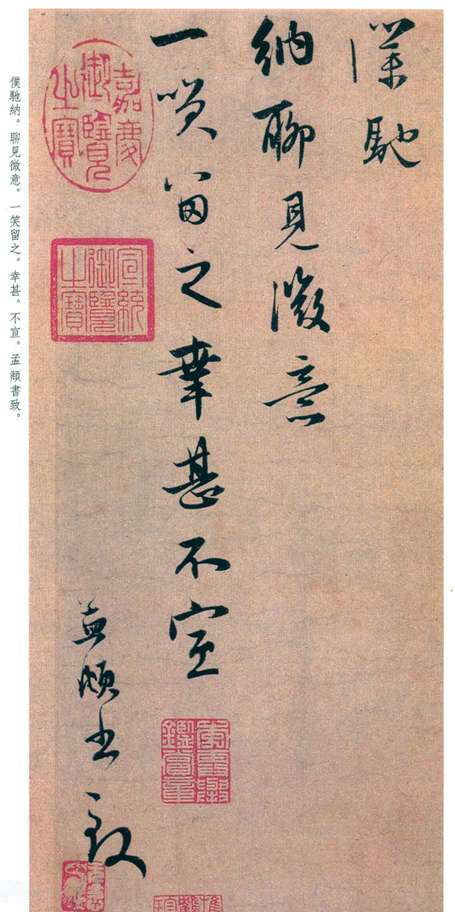 僕馳
納聊見微意
一咲留之幸甚不宣
孟頫書致
嘉慶御覽之寶
宣統御覽之寶
僕馳納。聊見微意。一笑留之。幸甚。不宣。孟頫書致。